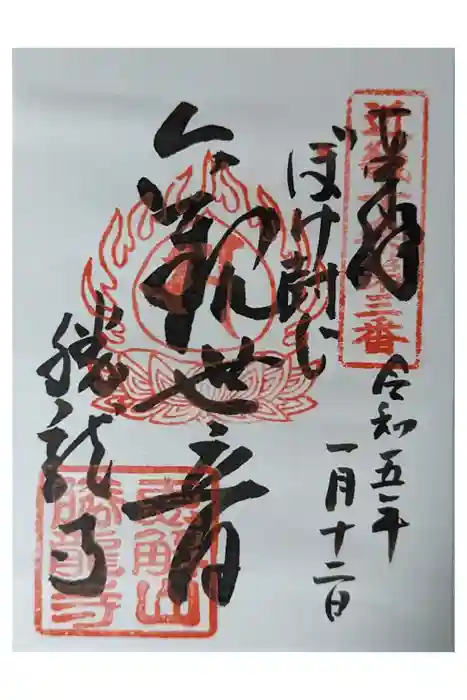 奉拝
近畿
第三番
令和五年
一月十二日
ぼけ封じ
観世音
勝龍寺
恵解山
勝龍寺